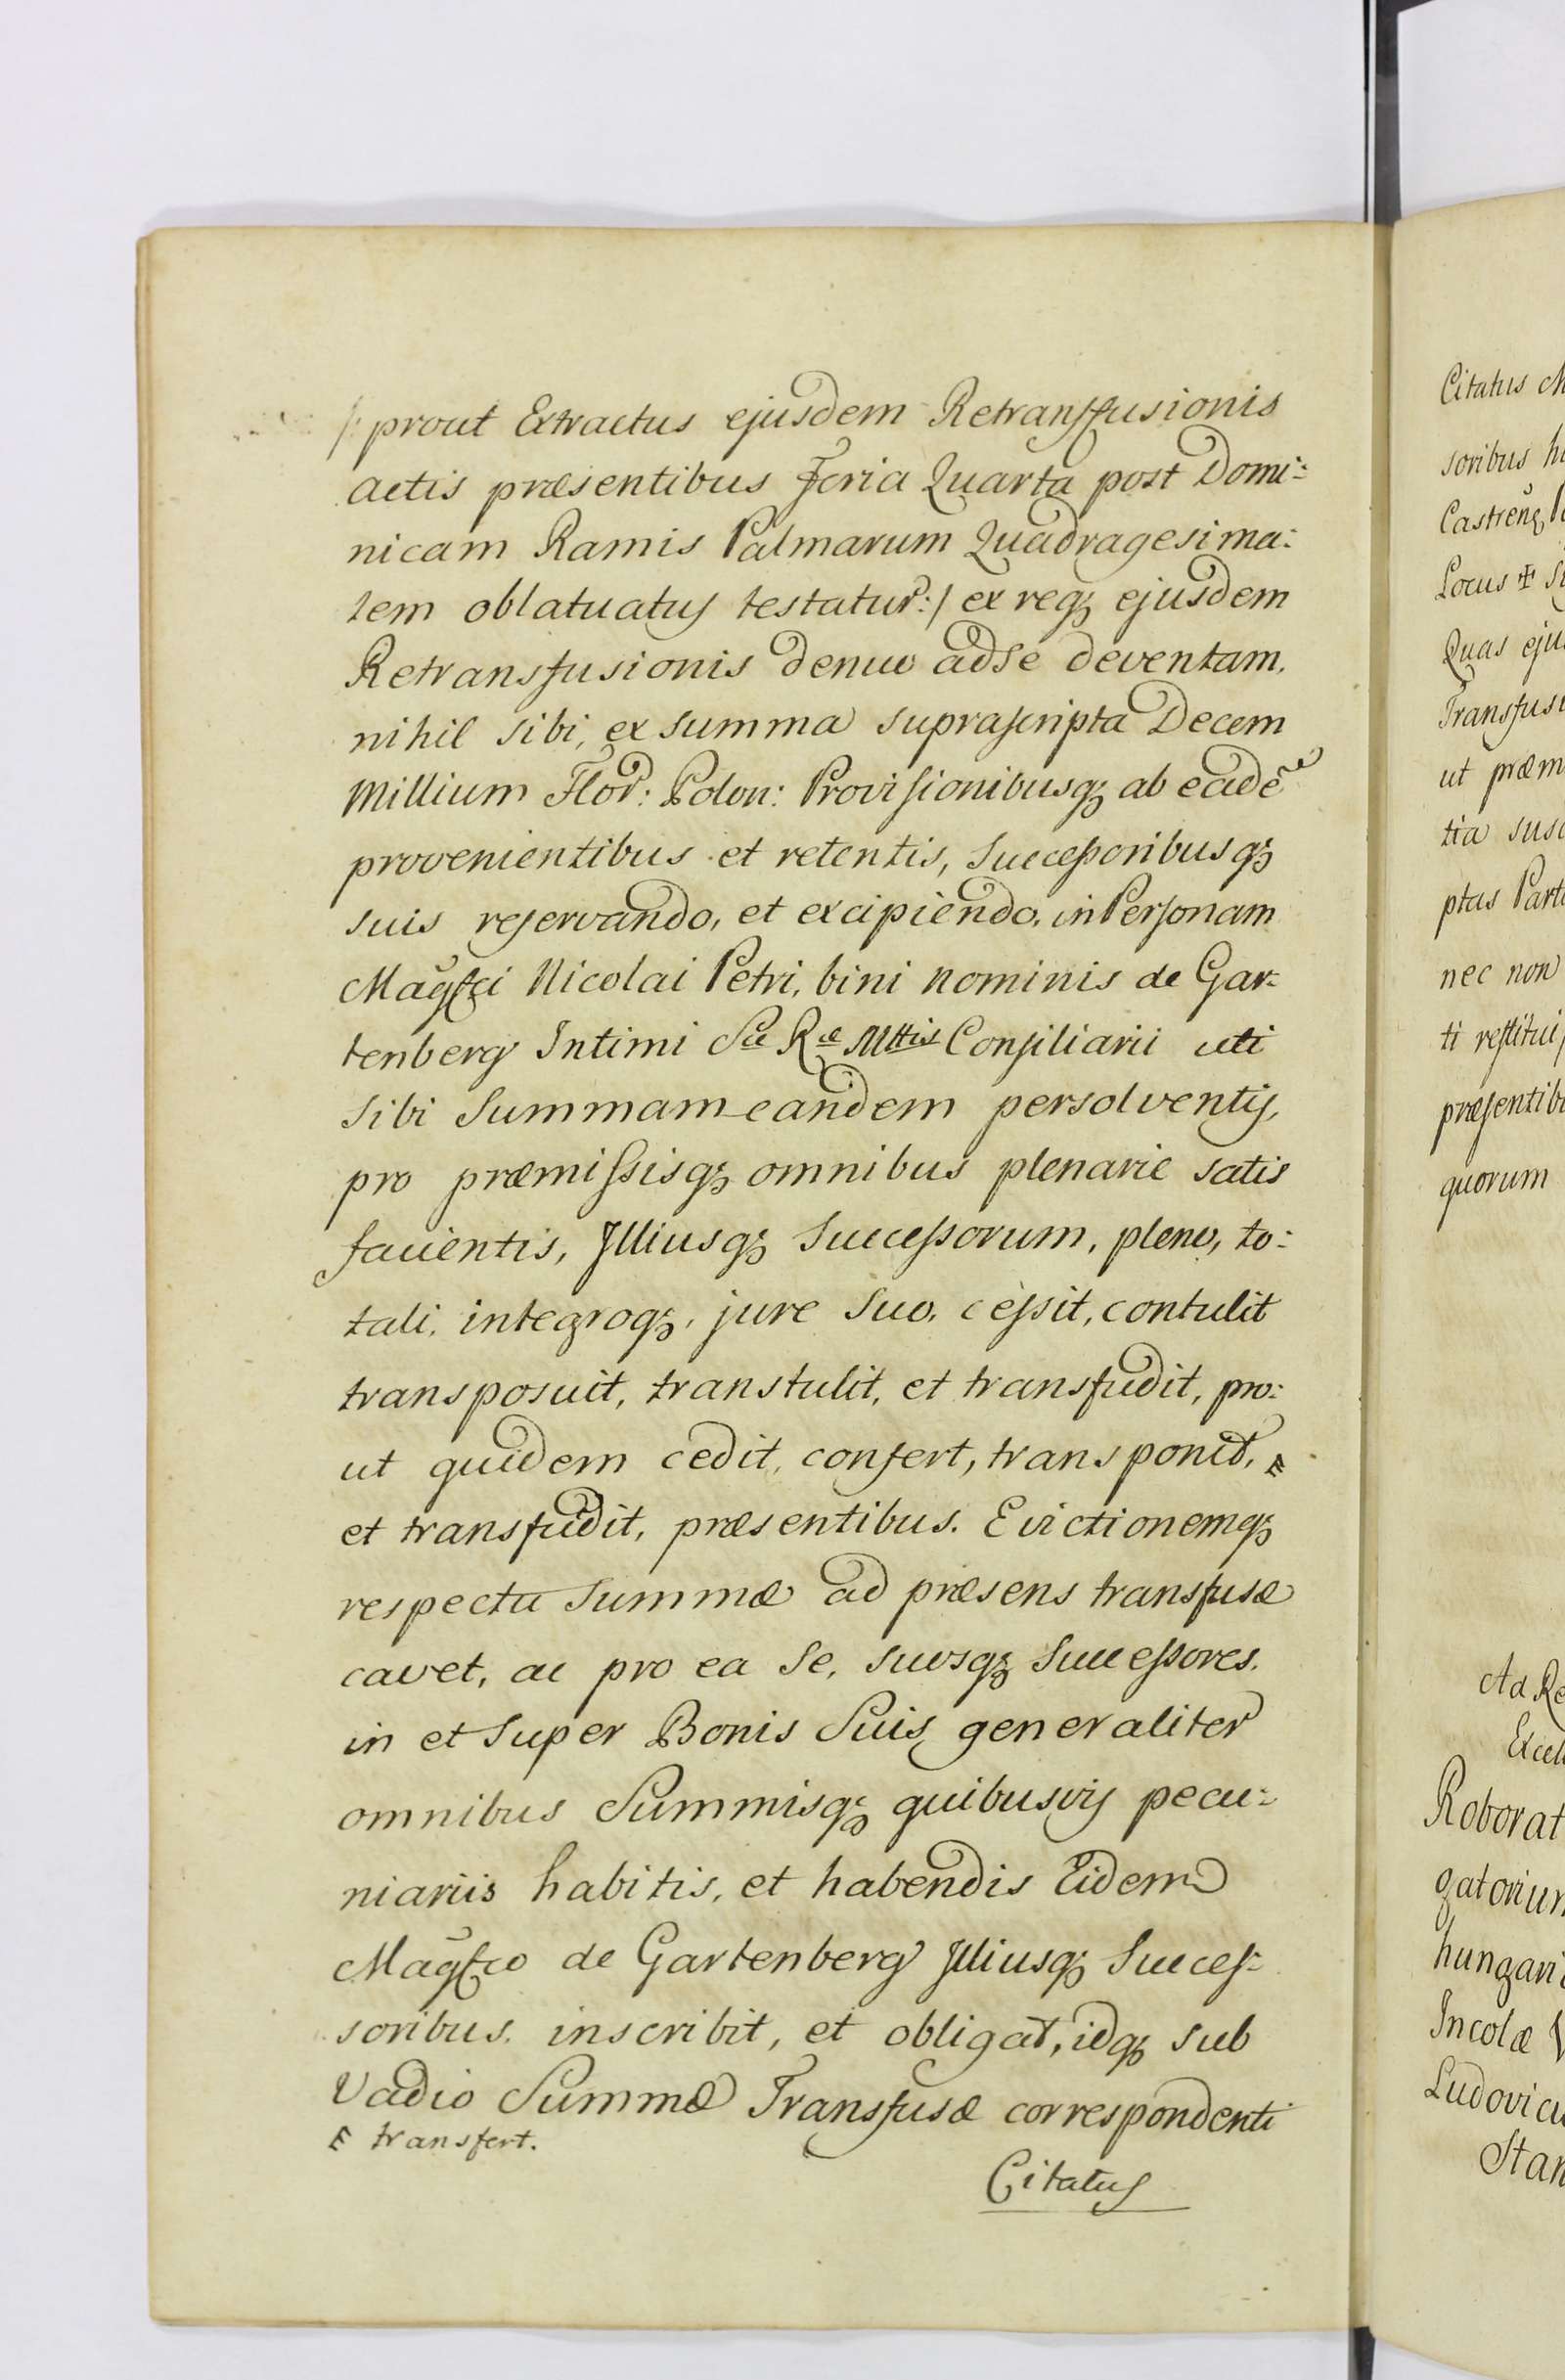 /: prout Extractus ejusdem Retransfusionis
actis præsentibus Feria Quarta post Domi:
nicam Ramis Palmarum Quadragesima:
lem oblatuatus testatur :/ ex reqz ejusdem
Retransfusionis denuo ad se deventam,
nihil sibi, ex summa suprascripta Decem
Millium Flor: Polon: Provisionibusqz ab eadē
provenientibus et retentis, Successoribusqz
suis reservando, et excipiendo, in Personam
Magfci Nicolai Petri, bini nominis de Gar:
tenberg Intimi Sæ Ræ Mttis Consiliarii uti
sibi Summam eandem persolventis,
pro præmissisqz omnibus plenarie satis
facientis, Illiusqz Successorum, pleno, to:
tali, integroqz, jure Suo, cessit, contulit
transposuit, transtulit, et transfudit, pro:
ut quidem cedit, confert, transponit, F
et transfudit, præsentibus. Evictionemqz
respectu Summæ ad præsens transfusæ
cavet, ac pro ea Se, suosqz Successores,
in et Super Bonis Suis generaliter
omnibus Summisqz quibusvis pecu:
niariis habitis, et habendis Eidem
Magfco de Gartenberg Illiusqz Succes:
soribus, inscribit, et obligat, idqz sub
Vadio Summæ Transfusæ correspondenti
F transfert.
Citatus
Citatus
soribus
Castrenz
Locus ✠
Quas
ut
tia
ptas
nec non
ti
quorum
Ad
Roborat
Incolæ